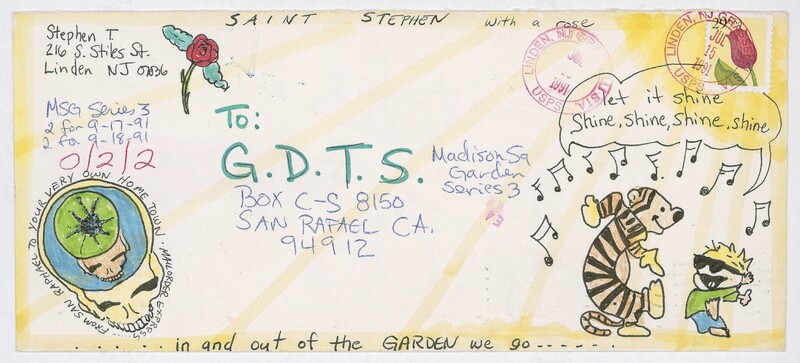 SAINT STEPHEN with a rose
Stephen T.
216 S. Stiles St.
Linden NJ 07036
MSG Series 3
2 for 9-17-91
2 for 9-18-91
0/2/2
To:
G.D.T.S.
BOX C-S 8150
SAN RAFAEL CA.
94912
Madison Sq
Garden
Series 3
LINDEN, NJ
JUL
1991
USPS
LINDEN, NJ
JUL
15
1991
USPS
29
let it shine
Shine, shine, shine, shine
FROM SAN RAPHAEL TO YOUR VERY OWN HOME TOWN. MAILORDER EXPRESS
......in and out of the GARDEN we go------